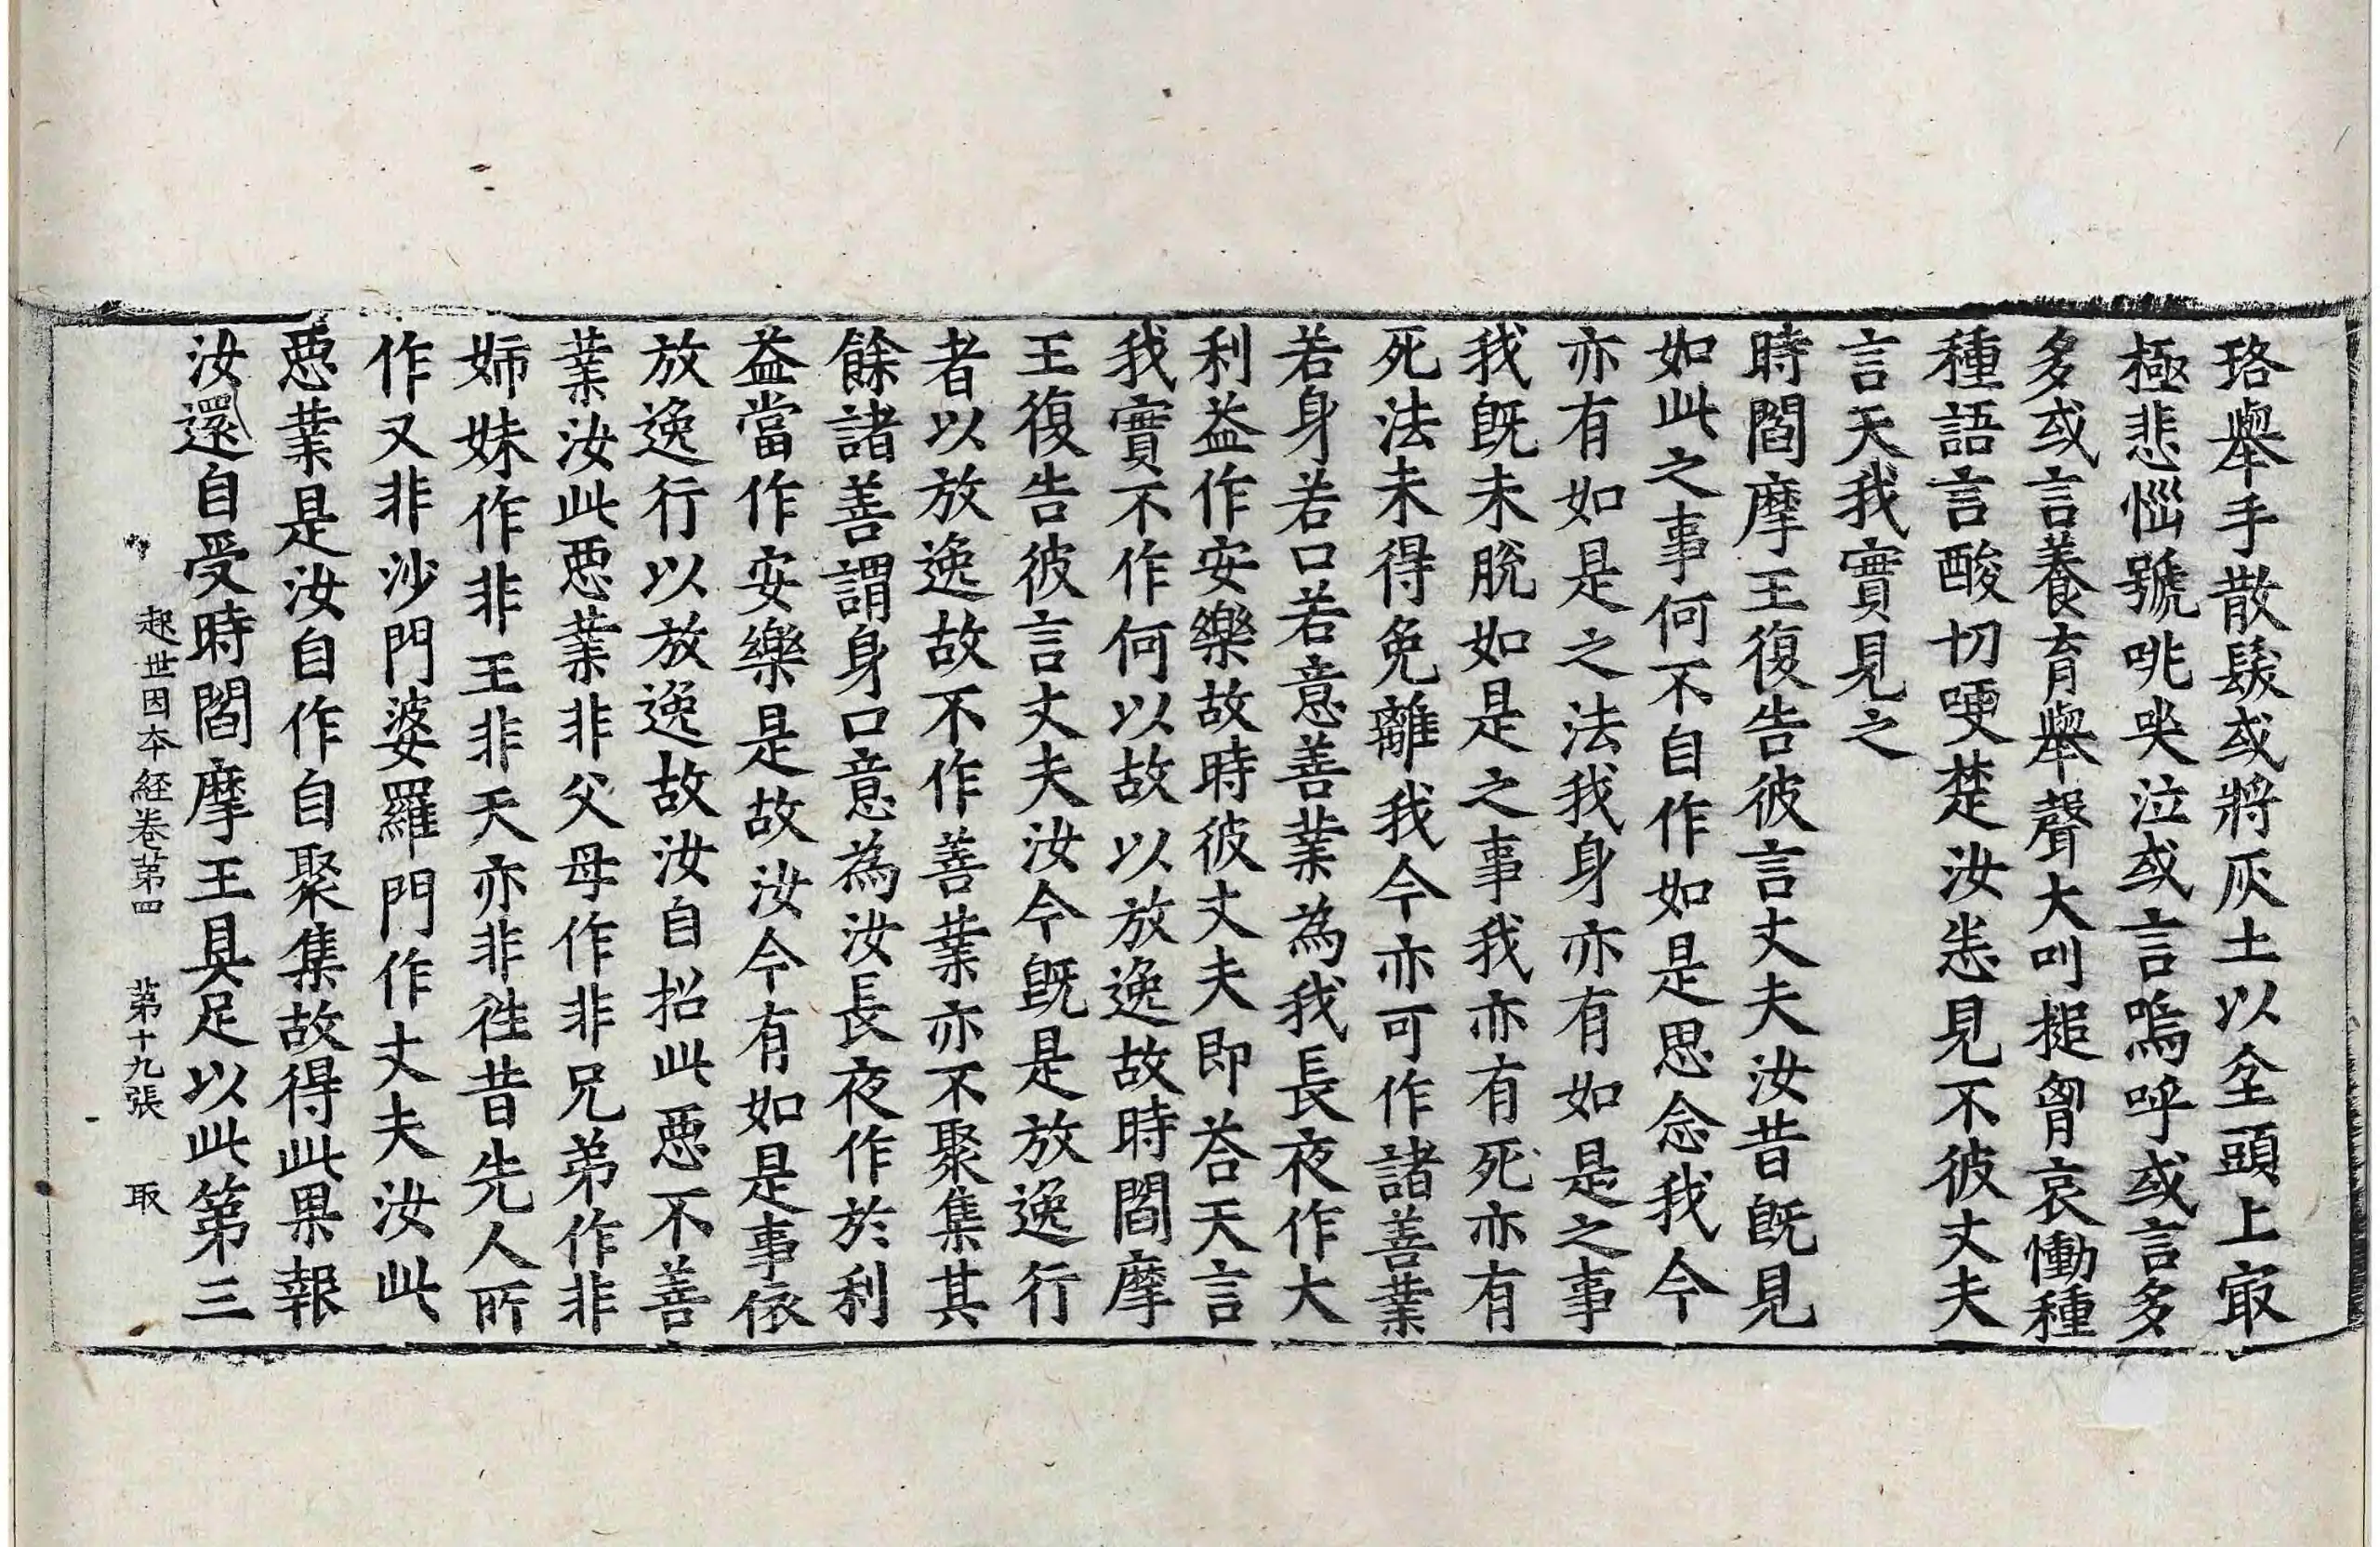 珞舉手散髮或將灰土以坌頭上㝡
極悲惱號咷哭泣或言嗚呼或言多
多或言養育舉聲大叫搥胷哀慟種
種語言酸切哽楚汝悉見不彼丈夫
言天我實見之
時閻摩王復告彼言丈夫汝昔旣見
如此之事何不自作如是思念我今
亦有如是之法我身亦有如是之事
我旣未脫如是之事我亦有死亦有
死法未得免離我今亦可作諸善業
若身若口若意善業為我長夜作大
利益作安樂故時彼丈夫即荅天言
我實不作何以故以放逸故時閻摩
王復告彼言丈夫汝今旣是放逸行
者以放逸故不作善業亦不聚集其
餘諸善謂身口意為汝長夜作於利
益當作安樂是故汝今有如是事依
放逸行以放逸故汝自招此惡不善
業汝此惡業非父母作非兄弟作非
姉妹作非王非天亦非徃昔先人所
作又非沙門婆羅門作丈夫汝此
惡業是汝自作自聚集故得此果報
汝還自受時閻摩王具足以此第三
起世因本經卷苐四 苐十九張 取